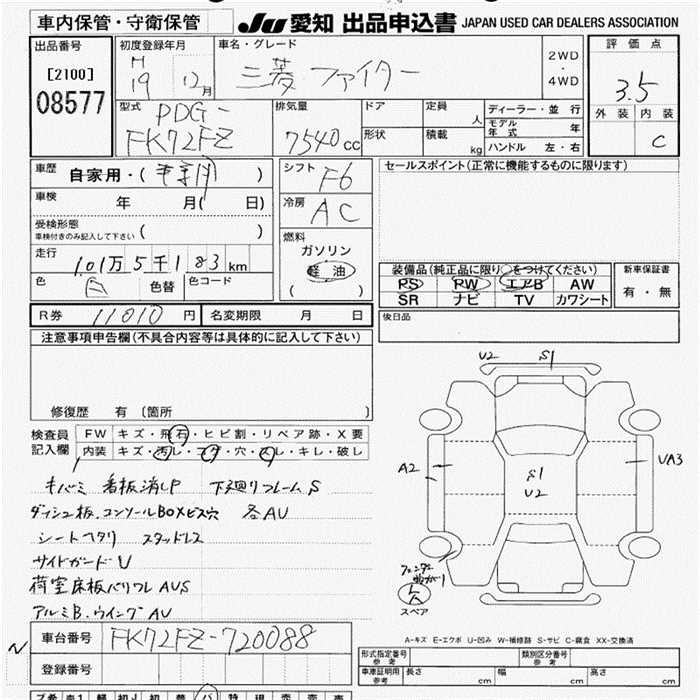 車内保管・守衛保管
JU 愛知 出品申込書 JAPAN USED CAR DEALERS ASSOCIATION
出品番号
[2100]
08577
初度登録年月
H
19 12月
車名・グレード
三菱 ファイター
2WD
・
4WD
評価点
3.5
外装 内装
C
型式
PDG-
FK72FZ
排気量
7540cc
ドア
形状
定員
人
積載
kg
ディーラー・並行
モデル
年式 年
ハンドル 左・右
車歴
自家用・( 事業用 )
車検
年 月( 日)
受検形態
車検付きのみ記入して下さい ( )
走行
101万5千183km
色
白
色替
色コード
シフト
F6
冷房
AC
燃料
ガソリン
軽油
( )
セールスポイント(正常に機能するものに限ります)
装備品(純正品に限り○をつけてください)
PS PW エアB AW
SR ナビ TV カワシート
新車保証書
有・無
後日品
R券 11010 円
名変期限 月 日
注意事項申告欄(不具合内容等は具体的に記入して下さい)
修復歴 有 〔箇所 〕
検査員
記入欄
FW キズ・飛石・ヒビ割・リペア跡・X要
内装 キズ・汚レ・コゲ・穴・スレ・キレ・破レ
キバミ 看板消しP 下廻りフレームS
ダッシュ板、コンソールBOXビス穴 各AU
シートヘタリ スタッドレス
サイドガードU
荷室床板バリワレ AUS
アルミB、ウイング AU
U2 S1
A2
S1
U2
UA3
フェンダー
スペア
A-キズ E-エクボ U-凹み W-補修跡 S-サビ C-腐食 XX-交換済
N
車台番号 FK72FZ-720088
登録番号
形式指定番号
参考
類別区分番号
参考
車庫証明用
参考
長さ cm 幅 cm 高さ cm